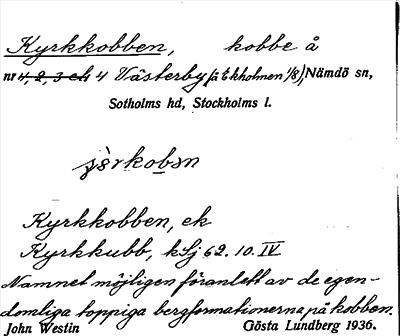 Kyrkkobben, kobbe å
nr 4, 2, 3 och 4 Västerby (på Ekholmen 1/8), Nämdö sn,
Sotholms hd, Stockholms l.
Kyrkkobben, ek
Kyrkkubb, kSj 62. 10. IV
Namnet möjligen föranlett av de egen-
domliga toppiga bergformationerna på kobben.
John Westin Gösta Lundberg 1936.